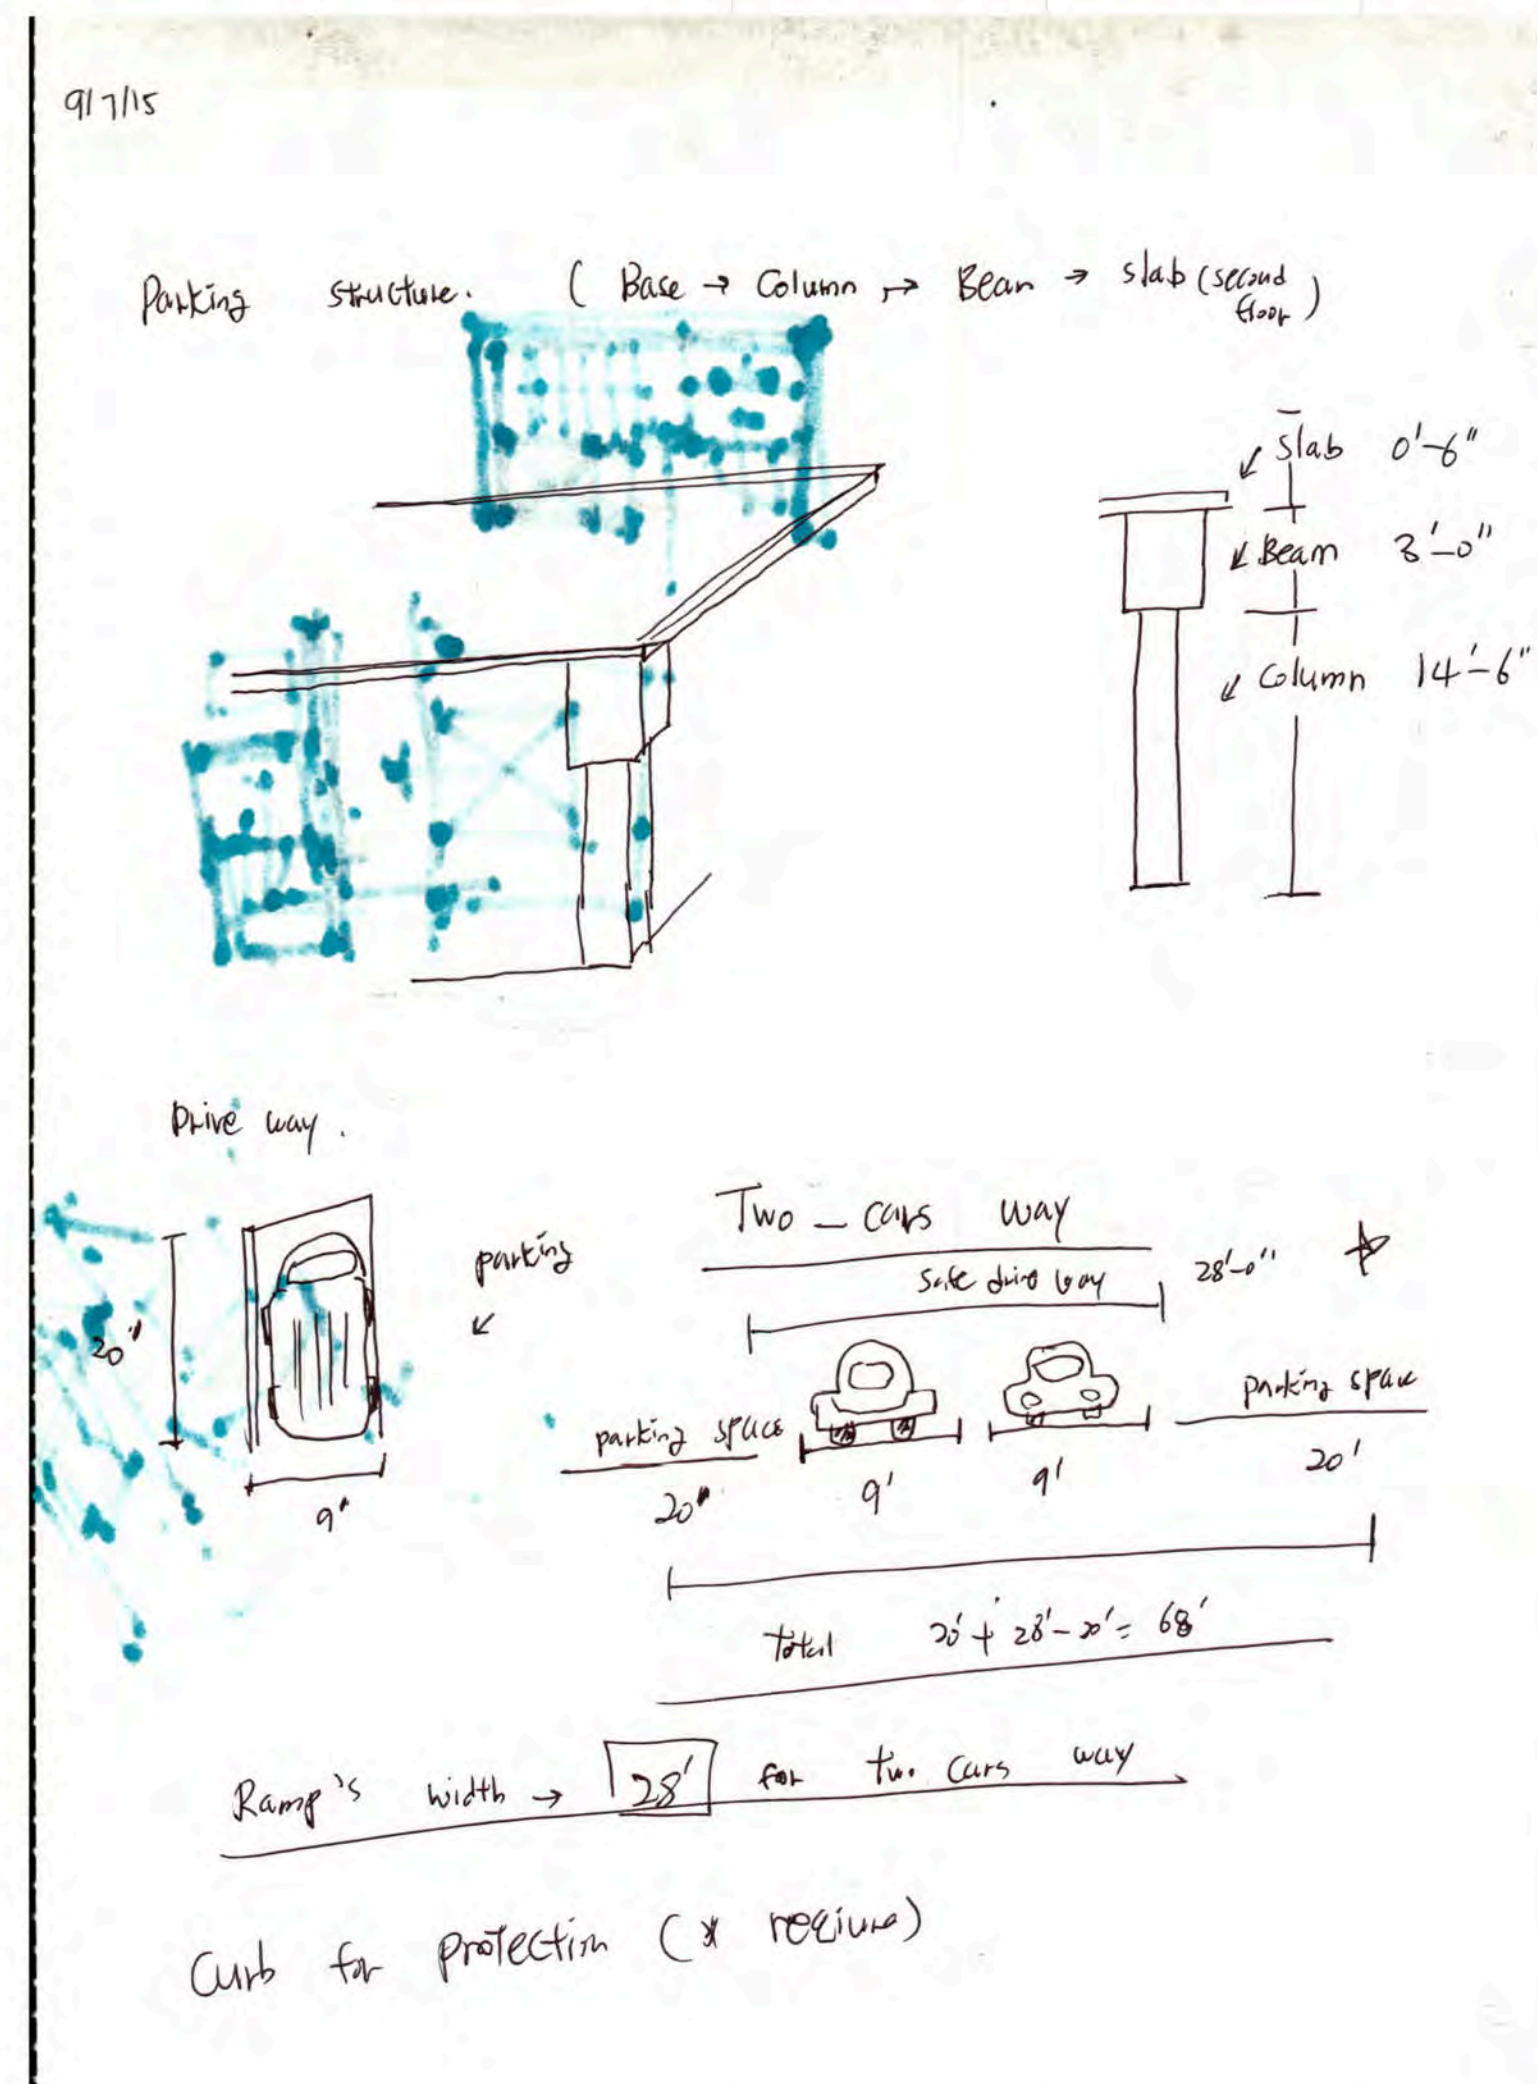 9/7/15
Parking structure. ( Base → Column → Beam → slab (second floor )
↙ Slab 0'-6"
↙ Beam 3'-0"
↙ Column 14'-6"
Drive way.
Two - cars way
parking
↙
safe drive way 28'-0"
20'
parking space
parking space
9"
20"
9'
9'
20'
Total 20' + 28' - 20' = 68'
Ramp's width → 28' for two cars way
Curb for protection (* reqiure)